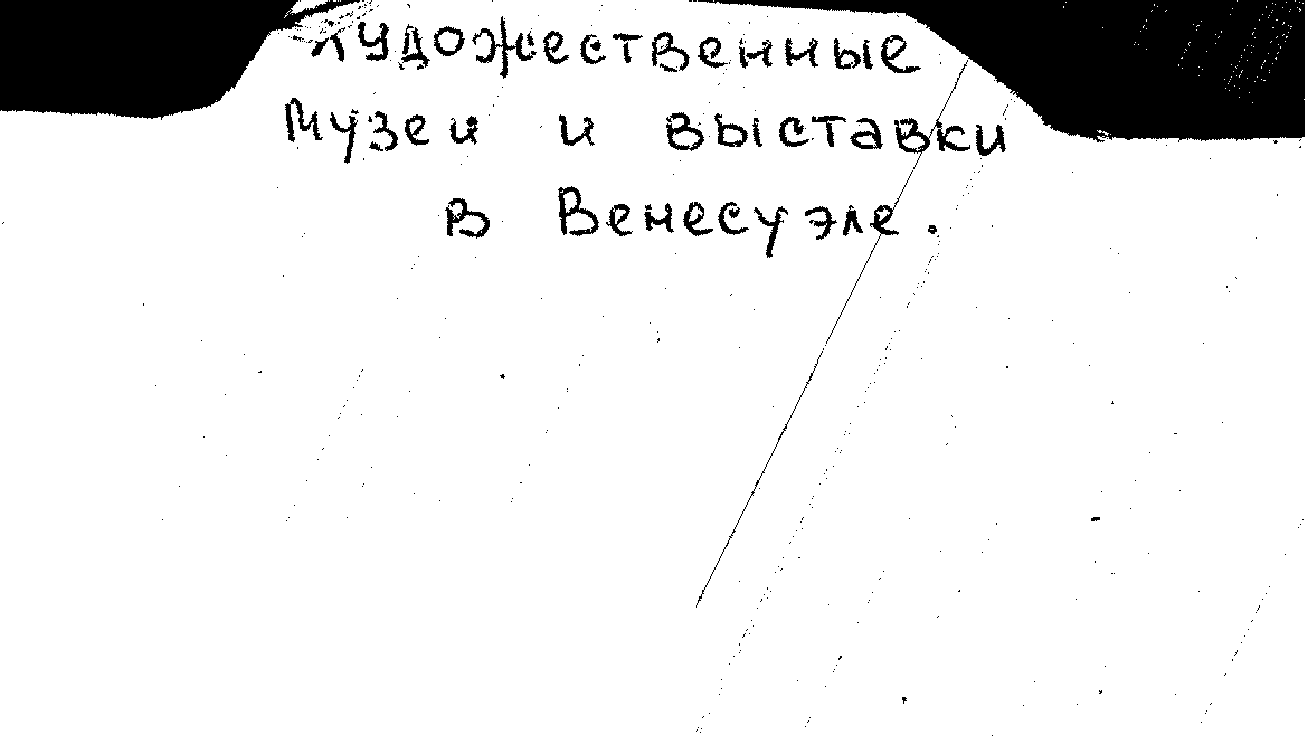 Художественные
Музеи и выставки
в Венесуэле.